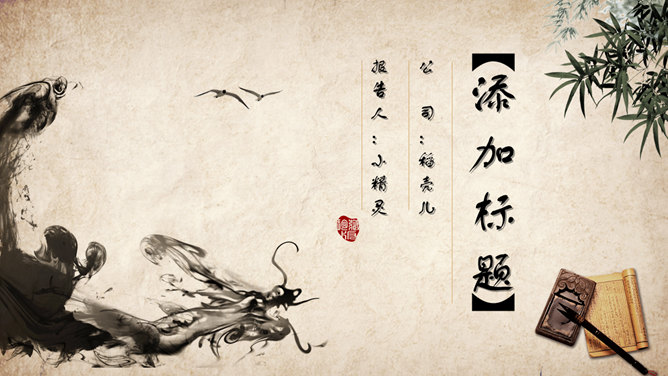 【添加标题】
公司：稻壳儿
报告人：小精灵